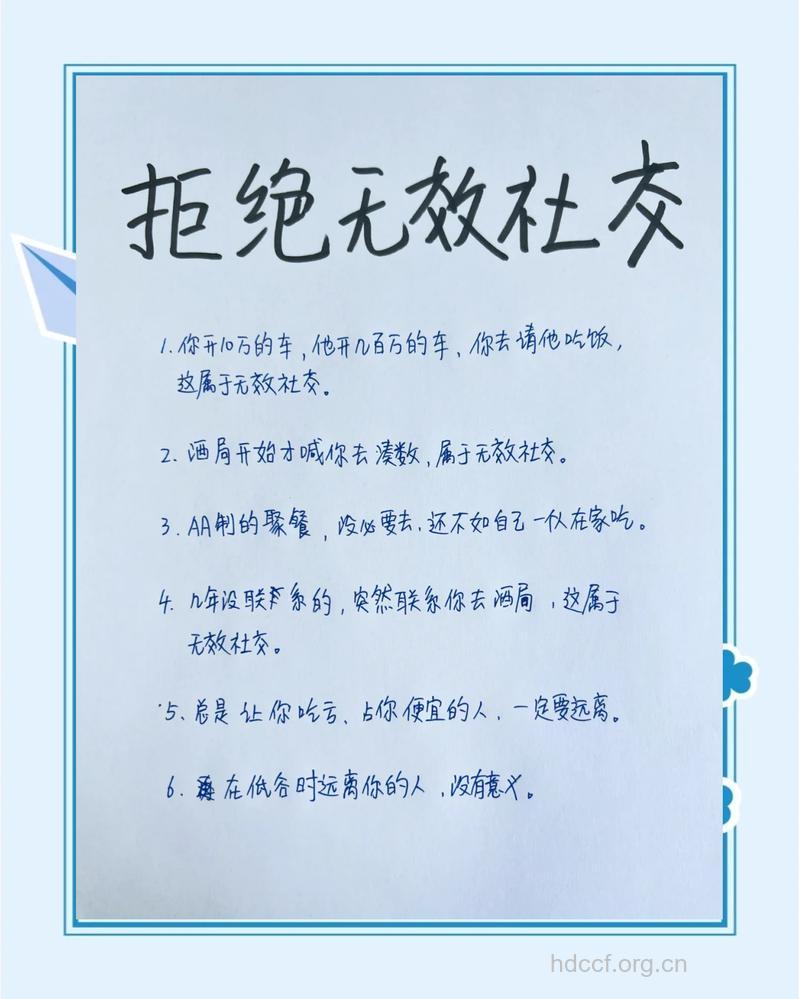 拒绝无效社交
1. 你开10万的车,他开几百万的车、你去请他吃饭,
这属于无效社交。
2. 酒局开始才喊你去凑数,属于无效社交。
3. AA制的聚餐,没必要去.还不如自己一伙在家吃。
4. 几年没联系的,突然联系你去酒局,这属于
无效社交。
5. 总是让你吃亏、占你便宜的人、一定要远离。
6. 在低谷时远离你的人,没有意义。
hdccf.org.cn